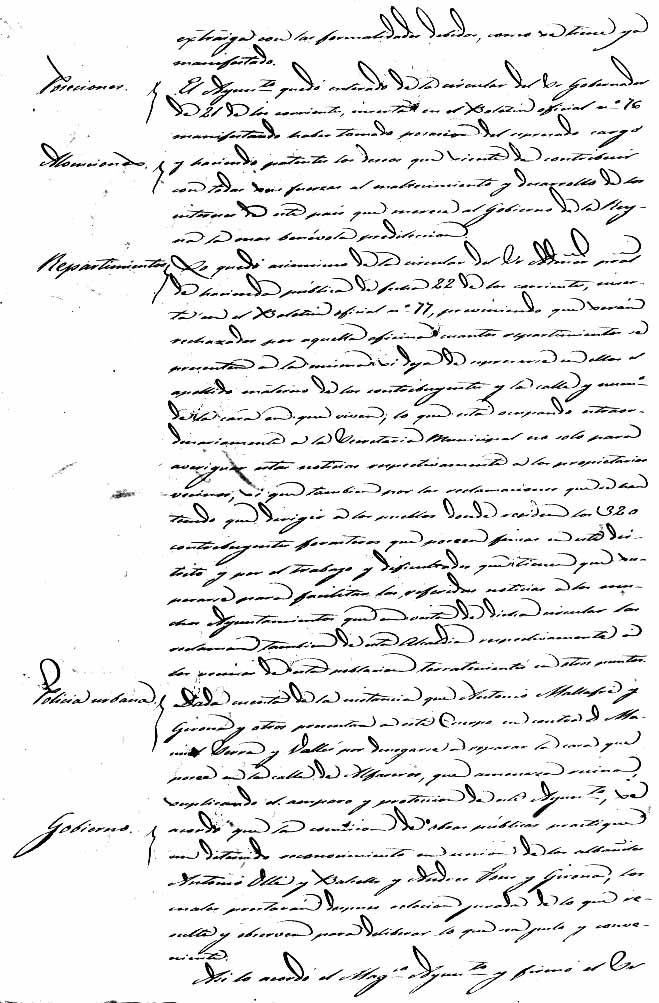 extraiga con las formalidades debidas, como se tiene ya
manifestado.
Posesiones. El Ayuntto quedó enterado de la circular del Sr Gobernador
de 21 de los corriente, inserta en el Boletin oficial nº 76
manifestando haber tomado posesion del espresado cargo
y haciendo patente los deseos que siente de contribuir
con todas sus fuerzas al engrandecimiento y desarrollo de los
intereses de este pais que merece al Gobierno de la Rey-
na la mas benévola predileccion.
Repartimientos. Lo quedó asimismo de la circular del Sr
de hacienda pública de fecha 22 de los corriente, inser-
ta en el Boletin oficial nº 77, previniendo que serán
rechazados por aquella oficina cuantos repartimientos se
presenten á la misma si deja de espresarse en ellos el
apellido materno de los contribuyentes y la calle y numº
de la casa en que viven; lo que está ocupando estraor-
dinariamente á la Secretaria Municipal no solo para
averiguar estas noticias respectivamente á los propietarios
vecinos, si que tambien por las reclamaciones que se han
tenido que dirigir á los pueblos donde residen los 320
contribuyentes forasteros que poseen fincas en este dis-
trito y por el trabajo y dificultades que tiene que su-
perarse para facilitar las referidas noticias á los mu-
chos Ayuntamientos que en vista de dicha circular las
reclaman tambien de esta Alcaldia respectivamente á
los vecinos de esta poblacion terratenientes en otros puntos.
Policia urbana. Dada cuenta de la instancia que Antonio Mallafré y
Girona y otros presentan á este Cuerpo en contra de Ma-
nuel Serra y Vallés por denegarse á reparar la casa que
posee en la calle de Alfareros, que amenaza ruina,
suplicando el amparo y proteccion de este Ayuntto, se
Gobierno. acordó que la comision de obras públicas practique
un detenido reconocimiento en union de los albañiles
Antonio y y Andres Pons y Girona, los
cuales prestarán despues relacion jurada de lo que re-
sulte y observen para deliberar lo que sea justo y conve-
niente.
Asi lo acordó el Magco Ayuntto y firmó el Sr